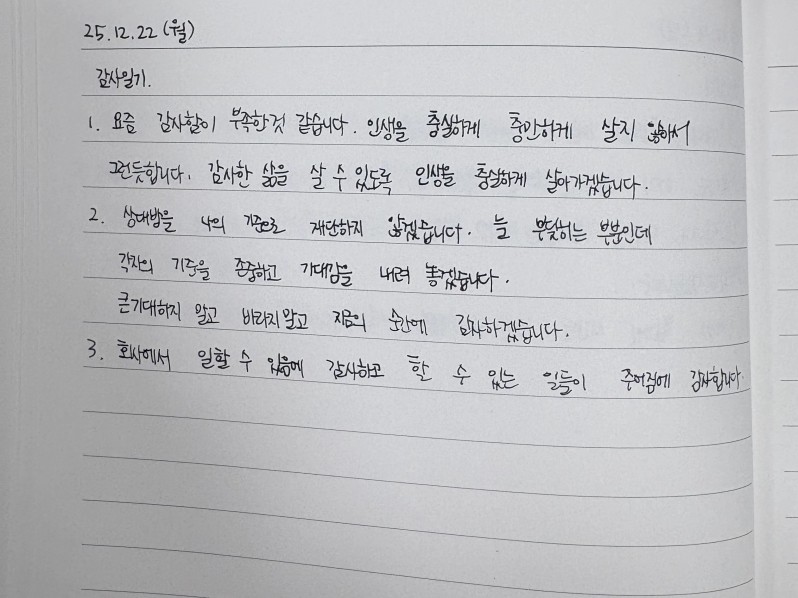 25.12.22 (월)
감사일기.
1. 요즘 감사함이 부족한것 같습니다. 인생을 충실하게 충만하게 살지 않아서
그런듯합니다. 감사한 삶을 살 수 있도록 인생을 충실하게 살아가겠습니다.
2. 상대방을 나의 기준으로 재단하지 않겠습니다. 늘 부딪히는 부분인데
각자의 기준을 존중하고 기대감을 내려 놓겠습니다.
큰기대하지 말고 바라지말고 지금의 순간에 감사하겠습니다.
3. 회사에서 일할 수 있음에 감사하고 할 수 있는 일들이 주어짐에 감사합니다.